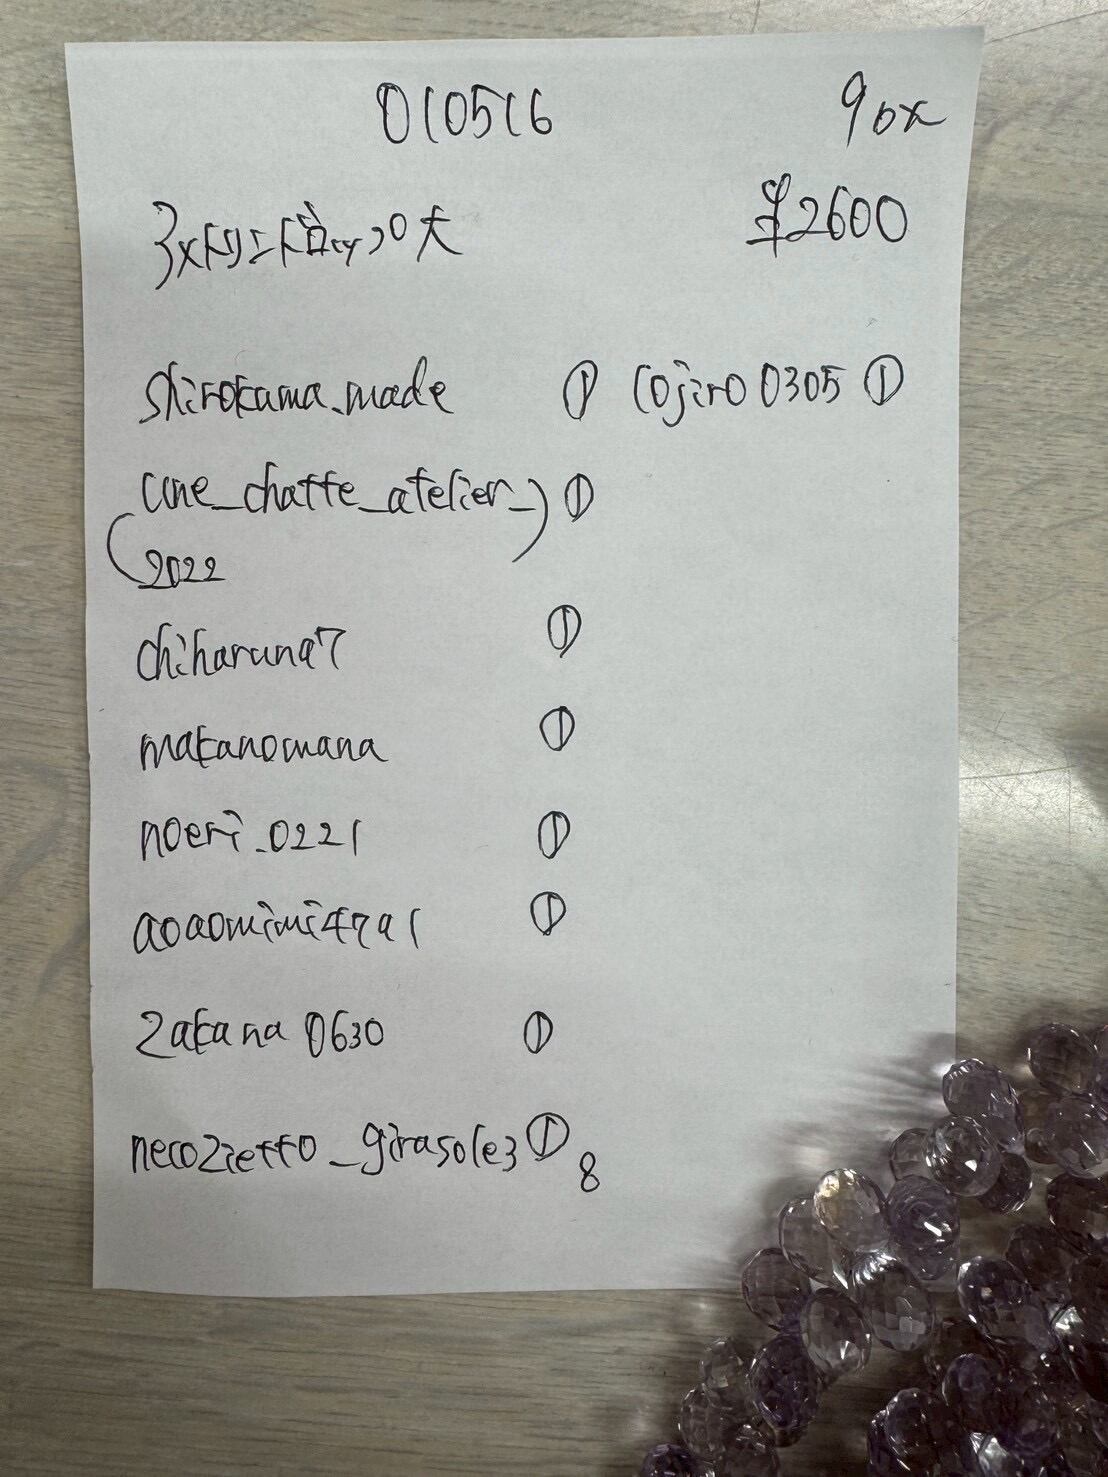 010516
90x
¥2600
shirokuma_made ① cojiro0305 ①
une_chatte_atelier_ ①
2022
chiharuna7 ①
makanomana ①
noeri_0221 ①
aoaomimi4791 ①
zakana0630 ①
necozietto_girasole3 ①
8